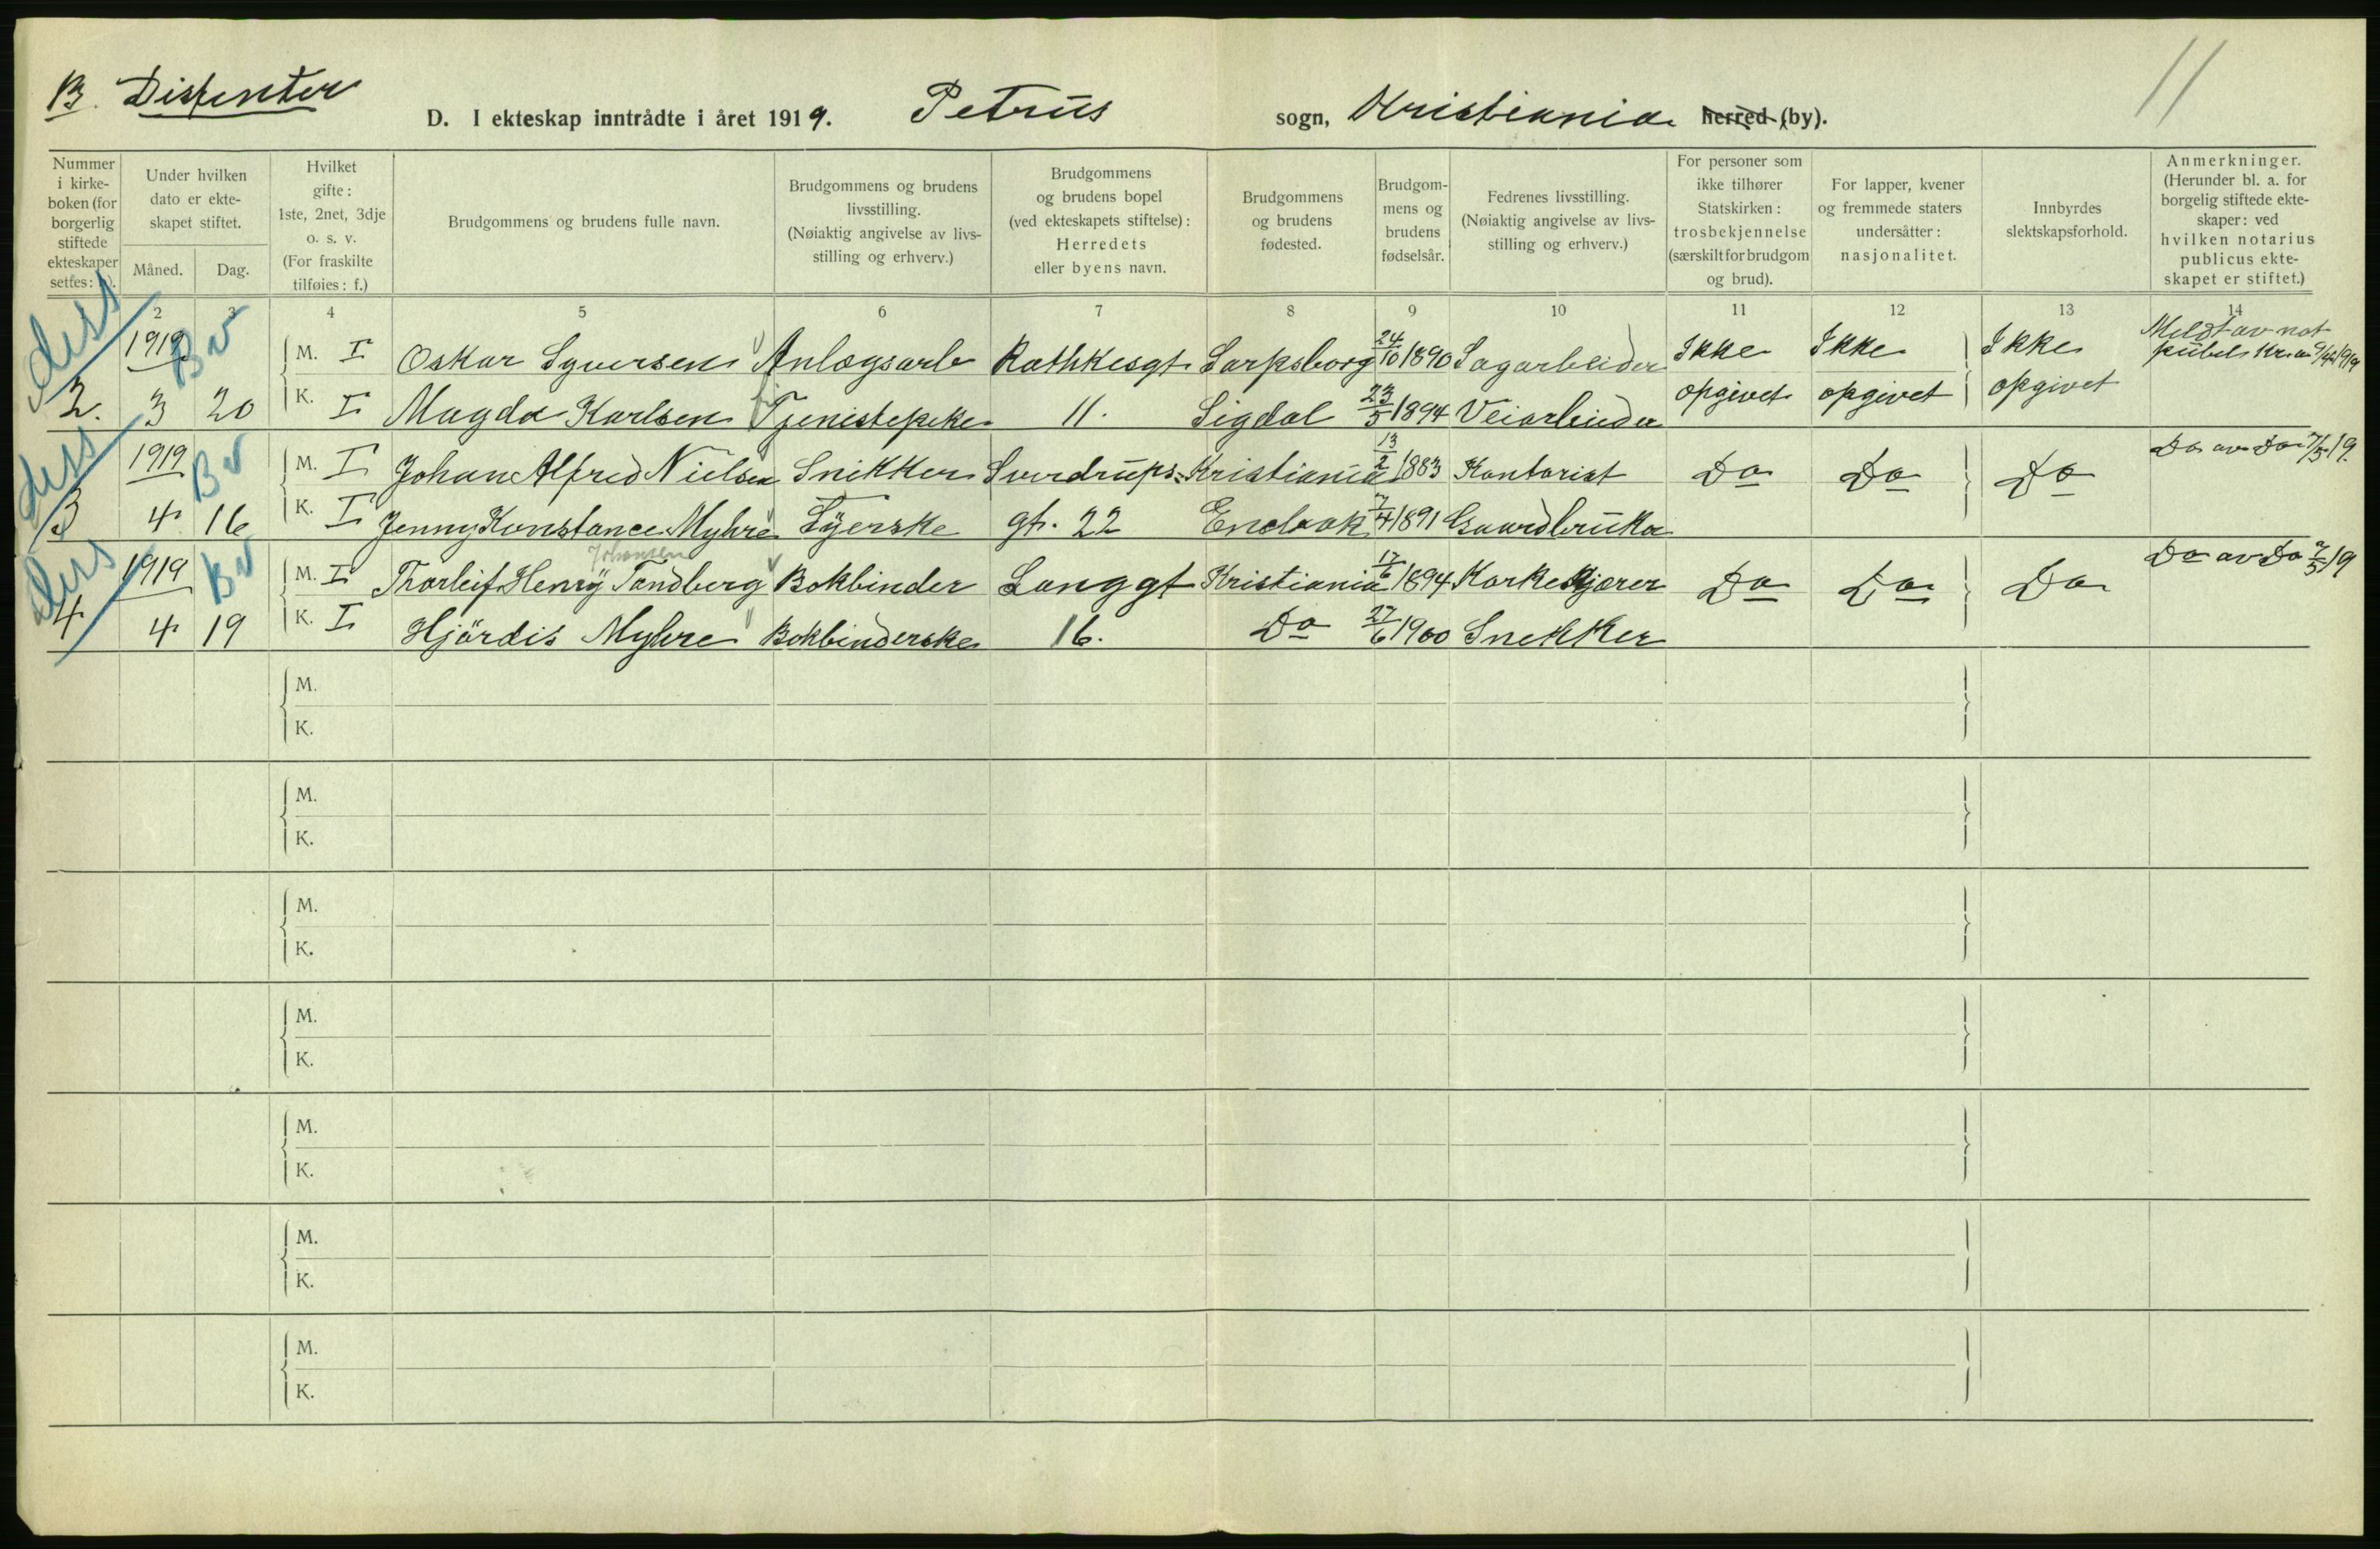 B. Disfenter
D. I ekteskap inntrådte i året 1919. Petrus sogn, Kristiania herred (by).
11
Nummer i kirkeboken (for borgerlig stiftede ekteskaper settes: b).
Under hvilken dato er ekteskapet stiftet.
Måned. Dag.
Hvilket gifte: 1ste, 2net, 3dje o. s. v. (For fraskilte tilføies: f.)
Brudgommens og brudens fulle navn.
Brudgommens og brudens livsstilling. (Nøiaktig angivelse av livsstilling og erhverv.)
Brudgommens og brudens bopel (ved ekteskapets stiftelse): Herredets eller byens navn.
Brudgommens og brudens fødested.
Brudgommens og brudens fødselsår.
Fedrenes livsstilling. (Nøiaktig angivelse av livsstilling og erhverv.)
For personer som ikke tilhører Statskirken: trosbekjennelse (særskilt for brudgom og brud).
For lapper, kvener og fremmede staters undersåtter: nasjonalitet.
Innbyrdes slektskapsforhold.
Anmerkninger. (Herunder bl. a. for borgelig stiftede ekteskaper: ved hvilken notarius publicus ekteskapet er stiftet.)
2 3 4 5 6 7 8 9 10 11 12 13 14
diss 1919 Bv M. I Oskar Syversen Anlægsarb Rathkesgt Sarpsborg 24/10 1890 Sagarbeider Ikke Ikke Ikke Meldt av not
2. 3 20 K. I Magda Karlsen Tjenestepike 11. Sigdal 23/5 1894 Veiarbeider opgivet opgivet opgivet publ. Kr.a 9/4 1919
diss 1919 Bv M. I Johan Alfred Nielsen Snikker Sverdrups- Kristiania 13/2 1883 Kontorist Do Do Do Do av Do 7/5 19.
3 4 16 K. I Jenny Konstance Myhre Syerske gt. 22 Enebak 7/4 1891 Gaardbruker
Johansen
diss 1919 Bv M. I Thorleif Henry Tandberg Bokbinder Langgt Kristiania 17/6 1894 Korkeskjærer Do Do Do Do av Do 7/5 19
4 4 19 K. I Hjördis Myhre Bokbinderske 16. Do 27/6 1900 Snekker
M.
K.
M.
K.
M.
K.
M.
K.
M.
K.
M.
K.
M.
K.